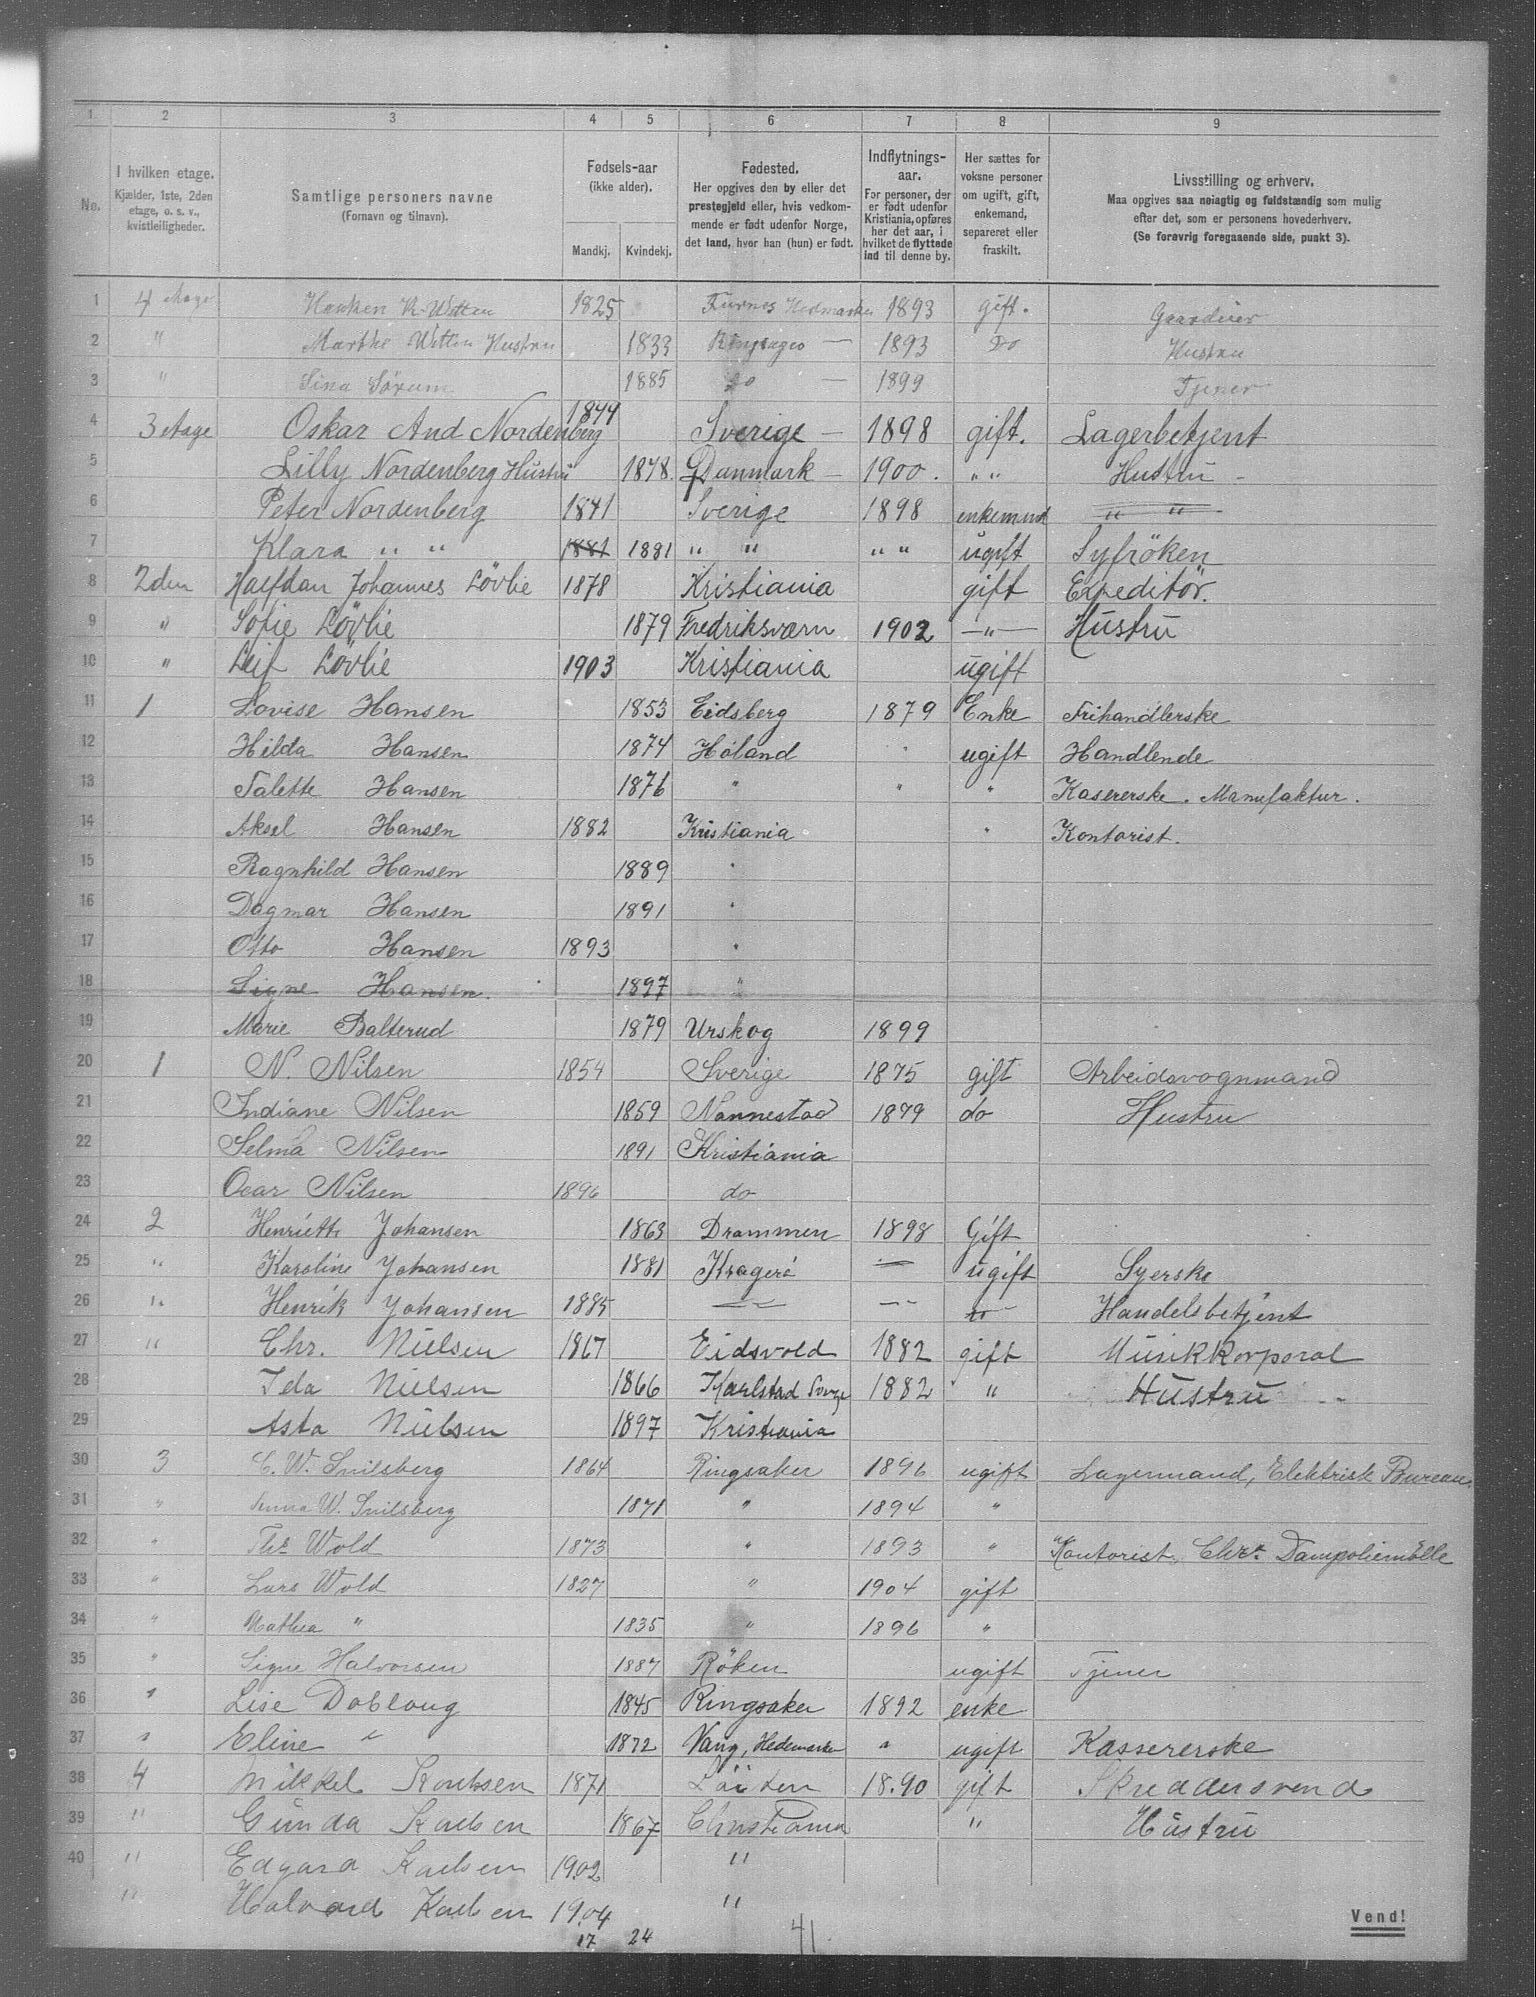 1 2 3 4 5 6 7 8 9
No.
I hvilken etage.
Kjælder, 1ste, 2den
etage, o. s. v.,
kvistleiligheder.
Samtlige personers navne
(Fornavn og tilnavn).
Fødsels-aar
(ikke alder).
Mandkj. Kvindekj.
Fødested.
Her opgives den by eller det
prestegjeld eller, hvis vedkom-
mende er født udenfor Norge,
det land, hvor han (hun) er født.
Indflytnings-
aar.
For personer, der
er født udenfor
Kristiania, opføres
her det aar, i
hvilket de flyttede
ind til denne by.
Her sættes for
voksne personer
om ugift, gift,
enkemand,
separeret eller
fraskilt.
Livsstilling og erhverv.
Maa opgives saa nøiagtig og fuldstændig som mulig
efter det, som er personens hovederhverv.
(Se forøvrig foregaaende side, punkt 3).
1 4 etage 1825 Furnes Hedmarken 1893 gift. Gaardeier
2 " Marthe Wetten Hustru 1833 Ringsager — 1893 Do Hustru
3 " Sina Sørum 1885 do — 1899 Tjener
4 3 etage Oskar And Nordenberg 1844 Sverige — 1898 gift. Lagerbetjent
5 Lilly Nordenberg Hustru 1878. Danmark — 1900. " " Hustru —
6 Peter Nordenberg 1841 Sverige 1898 enkemand " "
7 Klara " " 1881 1881 " " " " ugift Syfröken
8 2den Halfdan Johannes Lövlie 1878 Kristiania gift Expeditör.
9 " Sofie Lövlie 1879 Fredriksværn 1902 —"— Hustru
10 " Leif Lövlie 1903 Kristiania ugift
11 1 Lovise Hansen 1853 Eidsberg 1879 Enke Frihandlerske
12 Hilda Hansen 1874 Høland " ugift Handlende
13 Talette Hansen 1876 " " " Kasererske. Manufaktur.
14 Aksel Hansen 1882 Kristiania " Kontorist.
15 Ragnhild Hansen 1889 "
16 Dagmar Hansen 1891 "
17 Otto Hansen 1893 "
18 Signe Hansen. 1897 "
19 Marie Balterud 1879 Urskog 1899
20 1 N. Nilsen 1854 Sverige 1875 gift Arbeidsvognmand
21 Indiane Nilsen 1859 Nannestad 1879 do Hustru
22 Selma Nilsen 1891 Kristiania
23 Ocar Nilsen 1896 do
24 2 Henriette Johansen 1863 Drammen 1898 Gift
25 " Karoline Johansen 1881 Kragerö — ugift Syerske
26 " Henrik Johansen 1885 — — do Handelsbetjent
27 " Chr. Nielsen 1867 Eidsvold 1882 gift Musikkorporal
28 Ida Nielsen 1866 Karlstad Sverge 1882 " Hustru
29 Asta Nielsen 1897 Kristiania
30 3 C. W. Snilsberg 1864 Ringsaker 1896 ugift Lagermand, Elektrisk Bureau.
31 " W. Snilsberg 1871 " 1894 "
32 " Wold 1873 " 1893 " Kontorist, Chra Dampoliemölle
33 " Lars Wold 1827 " 1904 gift
34 " Mathea " 1835 " 1896 "
35 " Signe Halvorsen 1887 Röken ugift Tjener
36 " Lise Dobloug 1845 Ringsaker 1892 enke
37 " Eline " 1872 Vang, Hedemarken " ugift Kassererske
38 4 Mikkel Karlsen 1871 Löiten 18.90 gift Skreddersvend
39 " Gunda Karlsen 1867 Christiania " Hustru
40 " Edgard Karlsen 1902 "
" Halvard Karlsen 1904 "
17 24 41.
Vend!